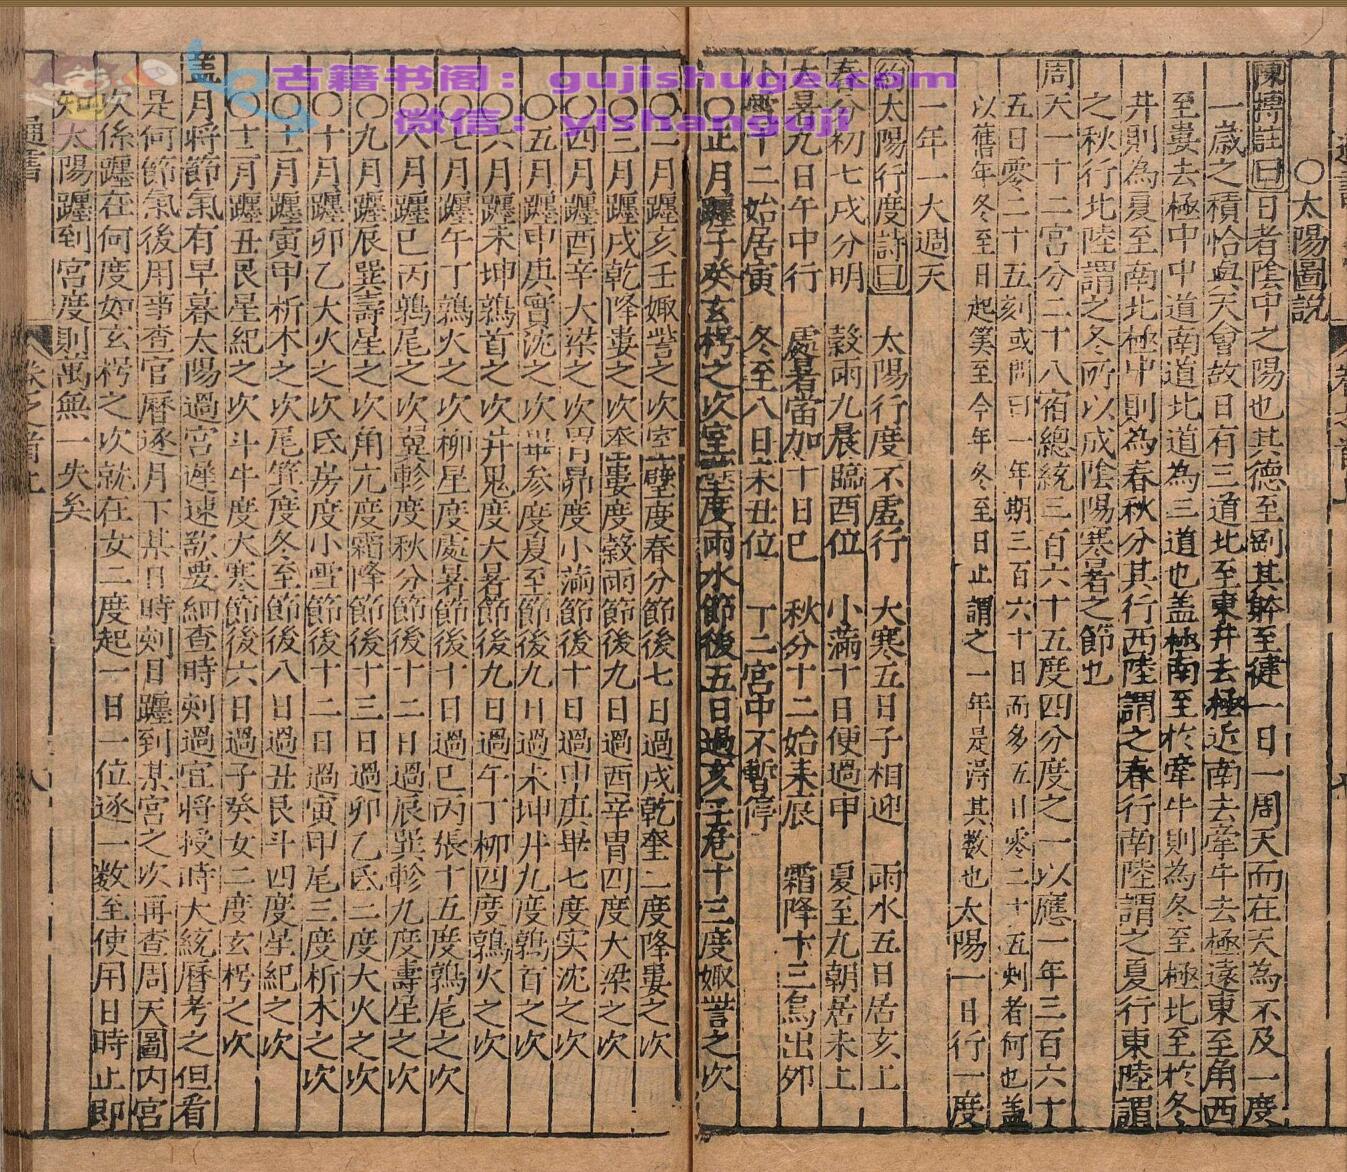 古籍书阁：gujishuge.com
微信：yishanguji
○太陽圖說
陳摶註曰日者陰中之陽也其德至剛其幹至健一日一周天而在天為不及一度
一歲之積恰與天會故日有三道北至東井去極近南去牽牛去極遠東至角西
至婁去極中中道南道北道為三道也盖極南至於牽牛則為冬至極北至於冬
井則為夏至南北極中則為春秋分其行西陸謂之春行南陸謂之夏行東陸謂
之秋行北陸謂之冬所以成陰陽寒暑之節也
周天一十二宮分二十八宿總統三百六十五度四分度之一以應一年三百六十
五日零二十五刻或問曰一年期三百六十日而多五日零二十五刻者何也盖
以舊年冬至日起筭至今年冬至日止謂之一年是淂其數也太陽一日行一度
一年一大週天
約太陽行度詩曰 太陽行度不虛行 大寒五日子相迎 雨水五日居亥上
春分初七戌分明 穀雨九晨臨酉位 小滿十日便過甲 夏至九朝居未上
大暑九日午中行 處暑當加十日巳 秋分十二始未辰 霜降十三烏出夘
小雪十二始居寅 冬至八日未丑位 丁二宮中不暫停
○正月躔子癸玄枵之次室至度雨水節後五日過亥壬危十三度娵訾之次
○二月躔亥壬娵訾之次室壁度春分節後七日過戌乾奎二度降婁之次
○三月躔戌乾降婁之次奎婁度穀雨節後九日過酉辛胃四度大梁之次
○四月躔酉辛大梁之次胃昴度小滿節後十日過申庚畢七度实沈之次
○五月躔申庚實沈之次畢参度夏至節後九日過未坤井九度鶉首之次
○六月躔未坤鶉首之次井鬼度大暑節後九日過午丁柳四度鶉火之次
○七月躔午丁鶉火之次柳星度處暑節後十日過巳丙張十五度鶉尾之次
○八月躔巳丙鶉尾之次翼軫度秋分節後十二日過辰巽軫九度壽星之次
○九月躔辰巽壽星之次角亢度霜降節後十三日過卯乙氐二度大火之次
○十月躔卯乙大火之次氐房度小雪節後十二日過寅甲尾三度析木之次
○十一月躔寅甲析木之次尾箕度冬至節後八日過丑艮斗四度星紀之次
○十二月躔丑艮星紀之次斗牛度大寒節後六日過子癸女二度玄枵之次
盖月將節氣有早暮太陽過宮遲速歌要細查時刻過宜將授時大統曆考之但看
是何節氣後用事查官曆逐月下某日時刻日躔到某宮之次再查周天圖內宮
次係躔在何度如玄枵之次就在女二度起一日一位逐一数至使用日時止即
知太陽躔到宮度則萬無一失矣
通書
八